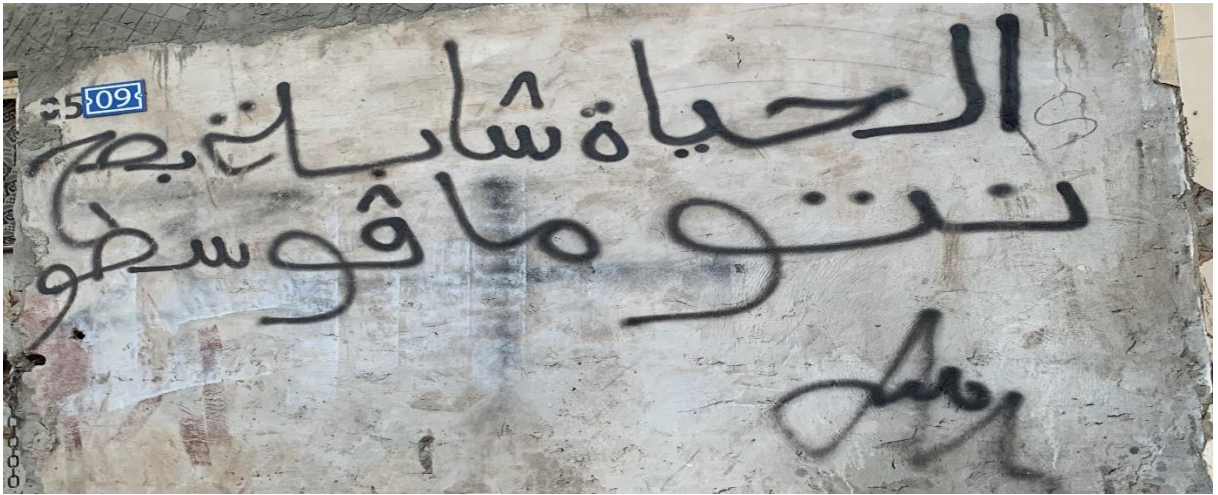 05 09
الحياة شابة بصح
نتوما ڨوسطو